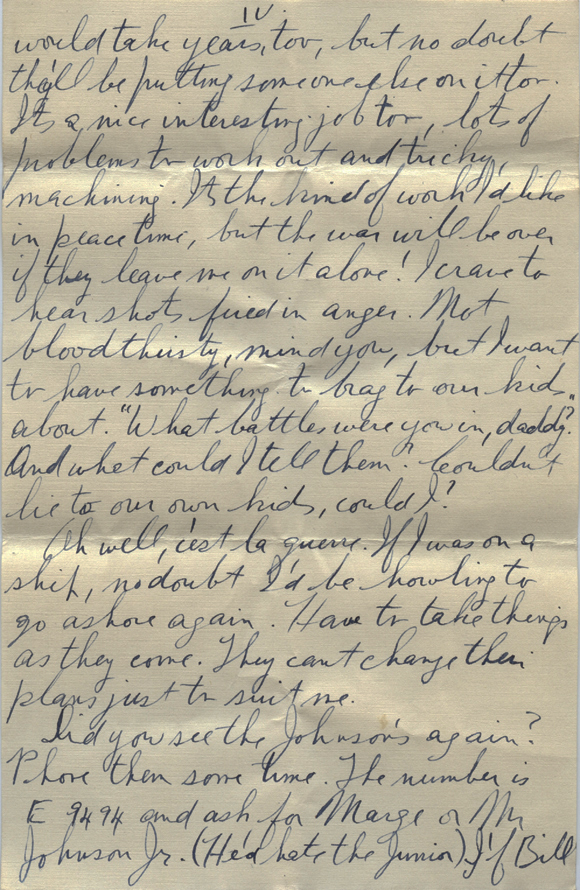 IV.
would take years, too, but no doubt
they'll be putting someone else on it too.
It's a nice interesting job too, lots of
problems to work out and tricky
machining. It's the kind of work I'd like
in peacetime, but the war will be over
if they leave me on it alone! I crave to
hear shots fired in anger. Not
bloodthirsty, mind you, but I want
to have something to brag to our kids
about. "What battles were you in, daddy?"
And what could I tell them? Couldn't
lie to our own kids, could I?
Oh well, c'est la guerre. If I was on a
ship, no doubt I'd be howling to
go ashore again. Have to take things
as they come. They can't change their
plans just to suit me.
Did you see the Johnson's again?
Phone them some time. The number is
E 9494 and ask for Marge or Mr
Johnson Jr. (He'd hate the Junior) If Bill